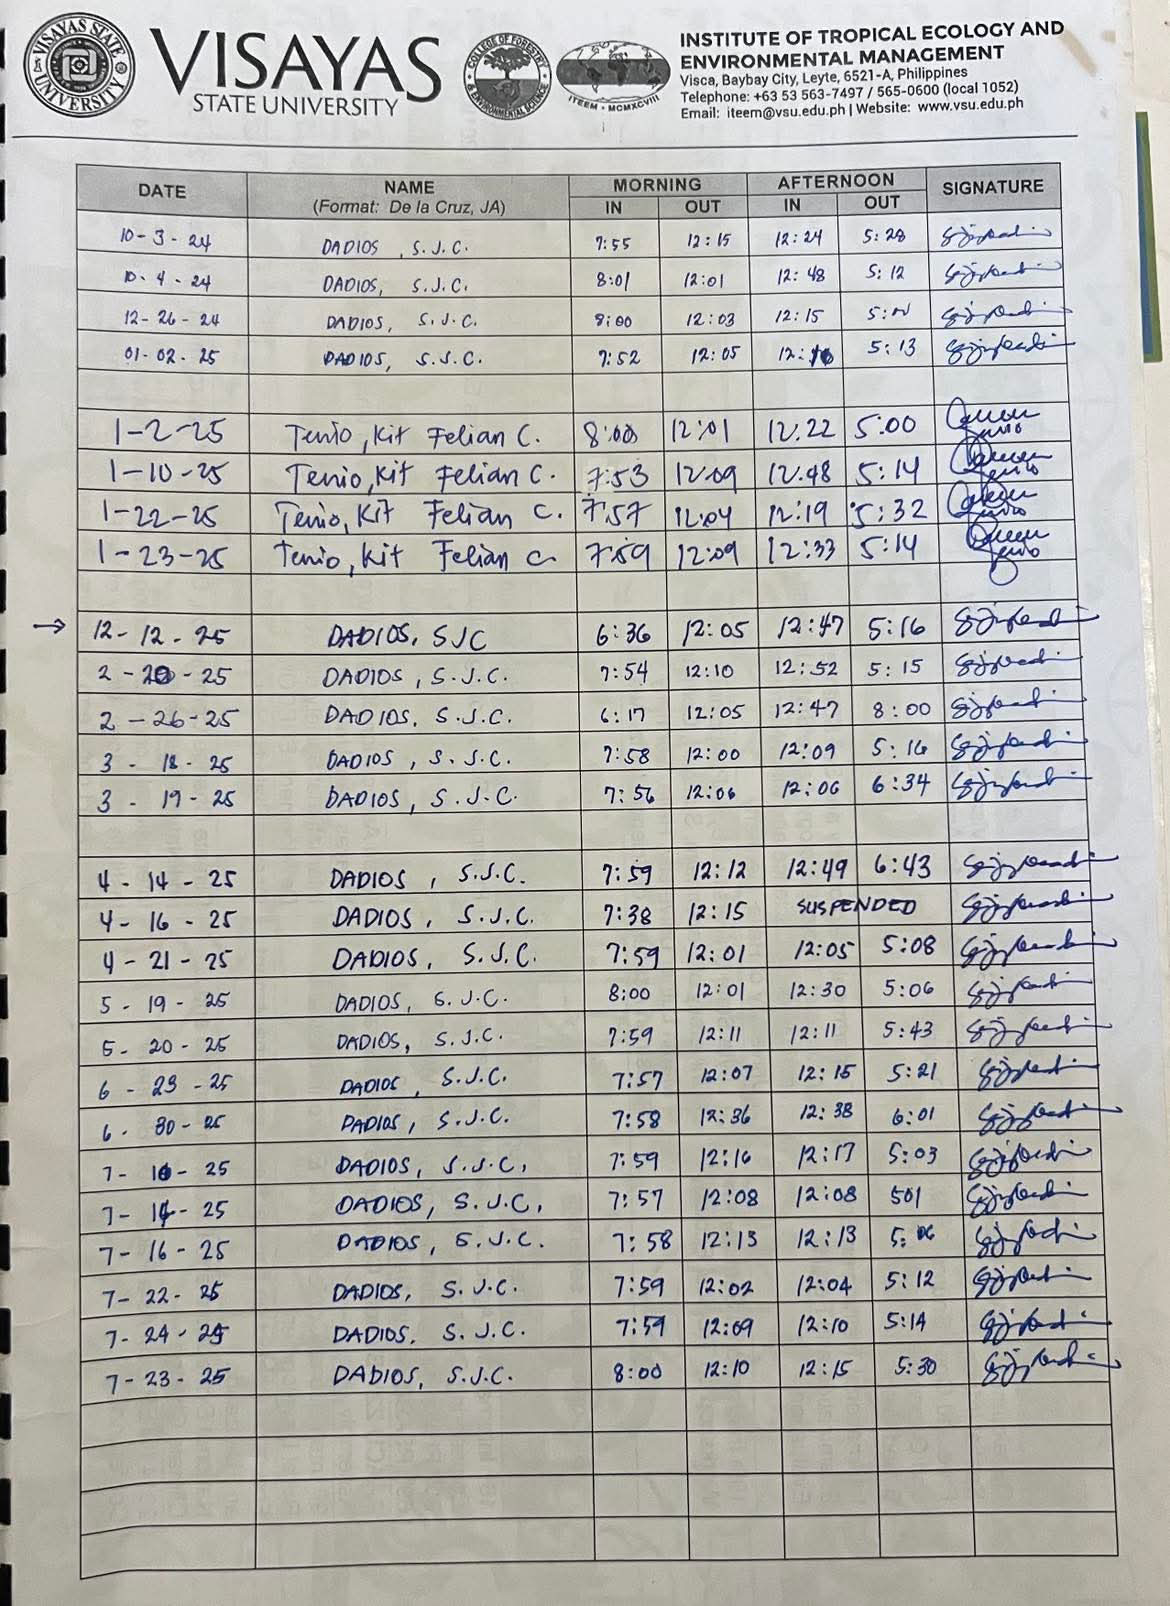 VISAYAS STATE UNIVERSITY
VISAYAS
STATE UNIVERSITY
COLLEGE OF FORESTRY & ENVIRONMENTAL SCIENCE
ITEEM - MCMXCVIII
INSTITUTE OF TROPICAL ECOLOGY AND
ENVIRONMENTAL MANAGEMENT
Visca, Baybay City, Leyte, 6521-A, Philippines
Telephone: +63 53 563-7497 / 565-0600 (local 1052)
Email: iteem@vsu.edu.ph | Website: www.vsu.edu.ph
DATE NAME MORNING AFTERNOON SIGNATURE
(Format: De la Cruz, JA) IN OUT IN OUT
10-3-24 DADIOS, S.J.C. 7:55 12:15 12:24 5:28
10-4-24 DADIOS, S.J.C. 8:01 12:01 12:48 5:12
12-26-24 DADIOS, S.J.C. 8:00 12:03 12:15
01-02-25 DADIOS, S.J.C. 7:52 12:05 5:13
1-2-25 Tenio, Kit Felian C. 8:00 12:01 12:22 5:00
1-10-25 Tenio, Kit Felian C. 7:53 12:09 12:48 5:14
1-22-25 Tenio, Kit Felian C. 7:57 12:04 12:19 5:32
1-23-25 Tenio, Kit Felian C. 7:59 12:09 12:33 5:14
→ 12-12-25 DADIOS, SJC 6:36 12:05 12:47 5:16
2-20-25 DADIOS, S.J.C. 7:54 12:10 12:52 5:15
2-26-25 DADIOS, S.J.C. 6:17 12:05 12:47 8:00
3-18-25 DADIOS, S.J.C. 7:58 12:00 12:09 5:16
3-19-25 DADIOS, S.J.C. 7:56 12:06 12:06 6:34
4-14-25 DADIOS, S.J.C. 7:59 12:12 12:49 6:43
4-16-25 DADIOS, S.J.C. 7:38 12:15 SUSPENDED
4-21-25 DADIOS, S.J.C. 7:59 12:01 12:05 5:08
5-19-25 DADIOS, S.J.C. 8:00 12:01 12:30 5:06
5-20-25 DADIOS, S.J.C. 7:59 12:11 12:11 5:43
6-23-25 DADIOS, S.J.C. 7:57 12:07 12:15 5:21
6-30-25 DADIOS, S.J.C. 7:58 12:36 12:38 6:01
7-10-25 DADIOS, S.J.C. 7:59 12:16 12:17 5:03
7-14-25 DADIOS, S.J.C. 7:57 12:08 12:08 501
7-16-25 DADIOS, S.J.C. 7:58 12:13 12:13 5:06
7-22-25 DADIOS, S.J.C. 7:59 12:02 12:04 5:12
7-24-25 DADIOS, S.J.C. 7:59 12:09 12:10 5:14
7-23-25 DADIOS, S.J.C. 8:00 12:10 12:15 5:30